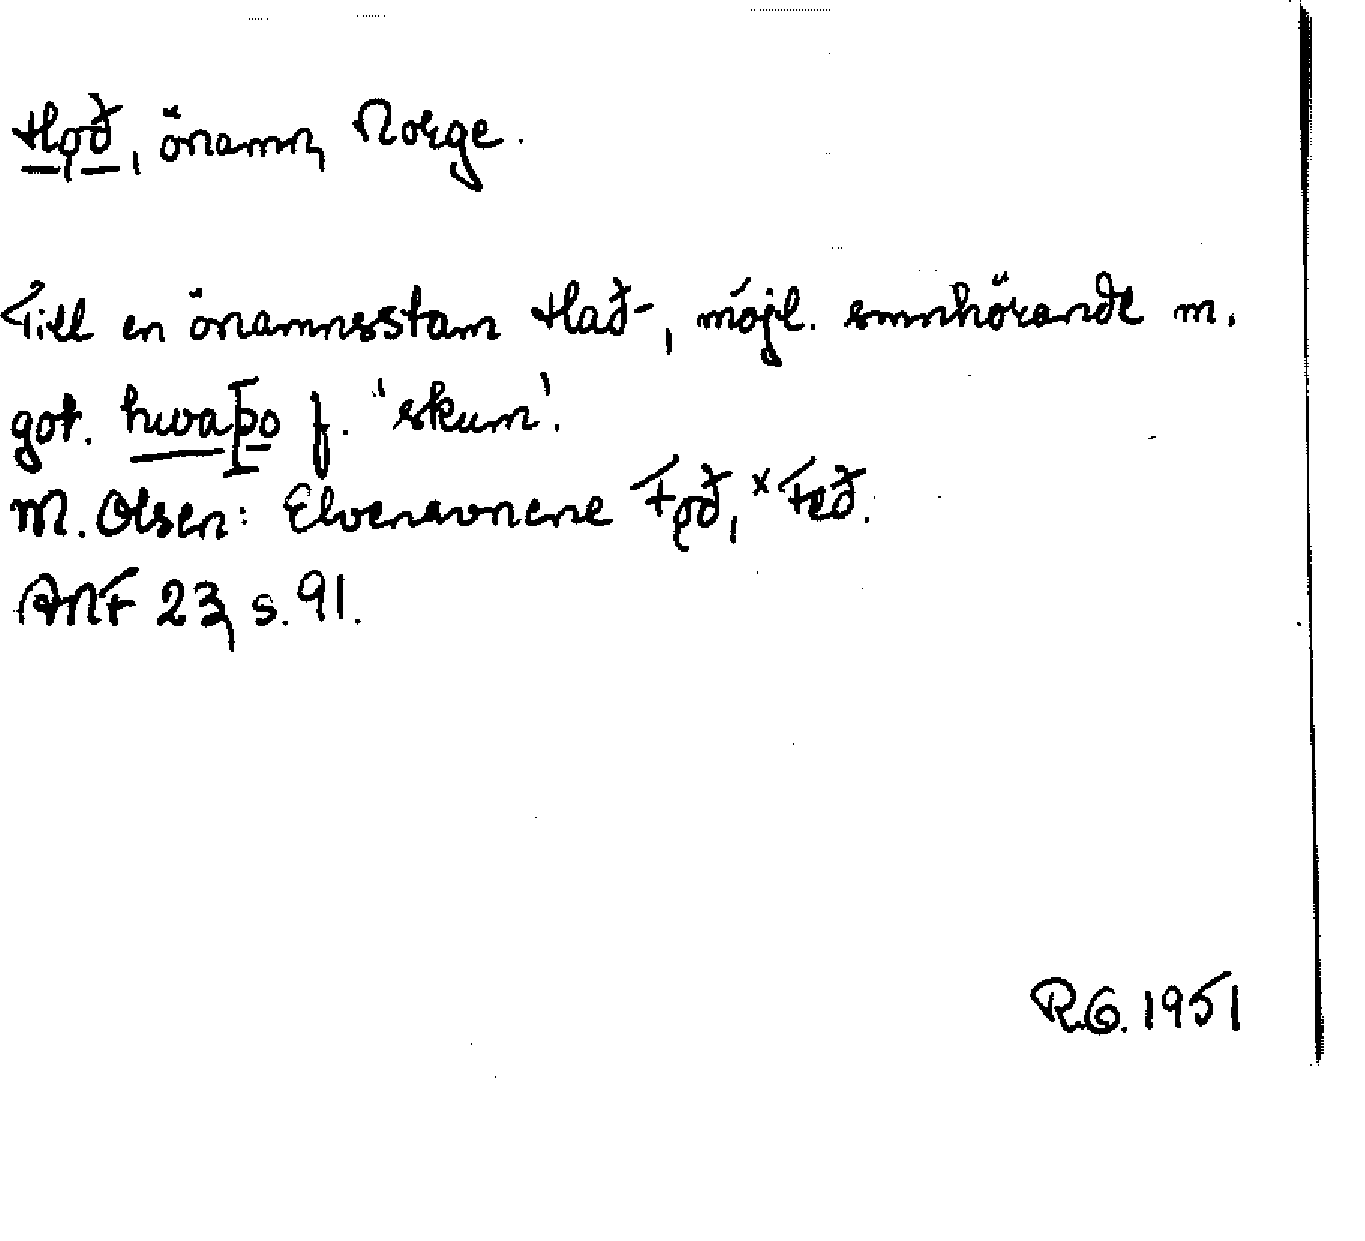 Hǫð, önamn, Norge.
Till en önamnsstam Hað-, möjl. smnhörande m.
got. hwaþo f. 'skum'.
M. Olsen: Elvenavnene Fǫð, ˣFæð.
ANF 23, s. 91.
R.G. 1951